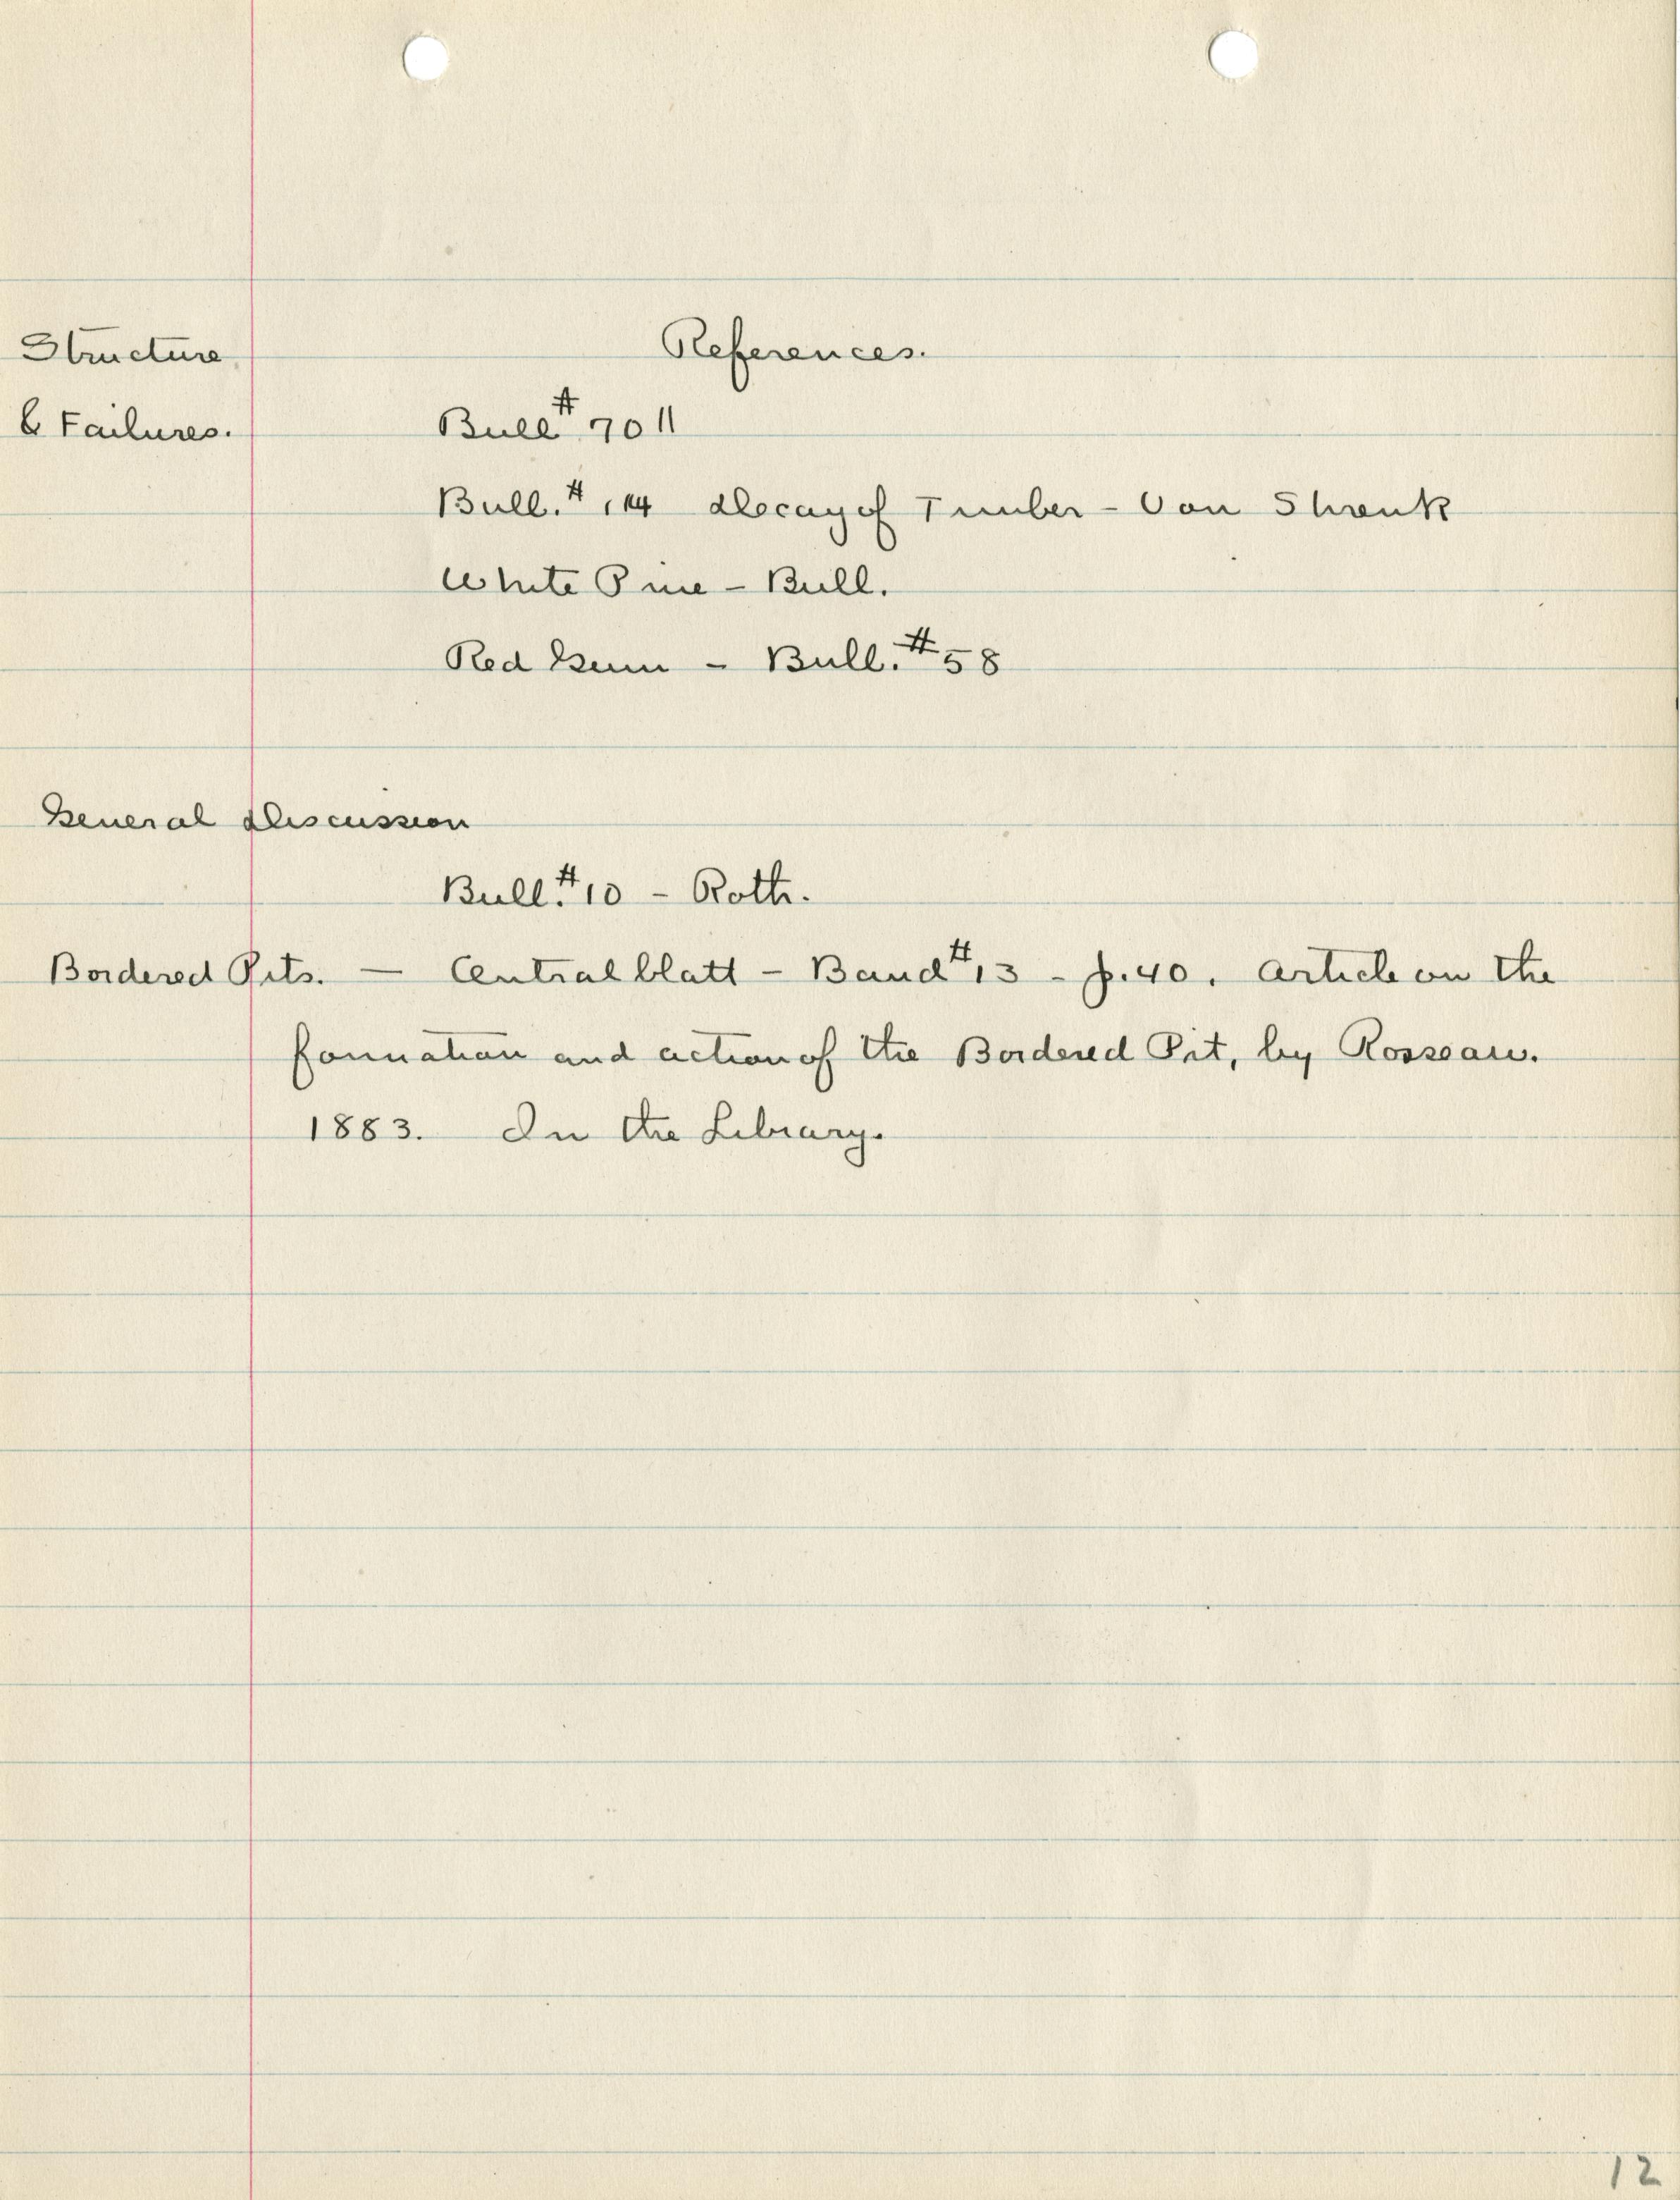 References.
Structure
& Failures.
Bull # 70 11
Bull. # 114 Decay of Timber - Von Shrenk
White Pine - Bull.
Red Gum - Bull. #58
General Discussion
Bull. #10 - Roth.
Bordered Pits. — Centralblatt - Band #13 - p. 40. Article on the
formation and action of the Bordered Pit, by Rosseau.
1883. In the Library.
12